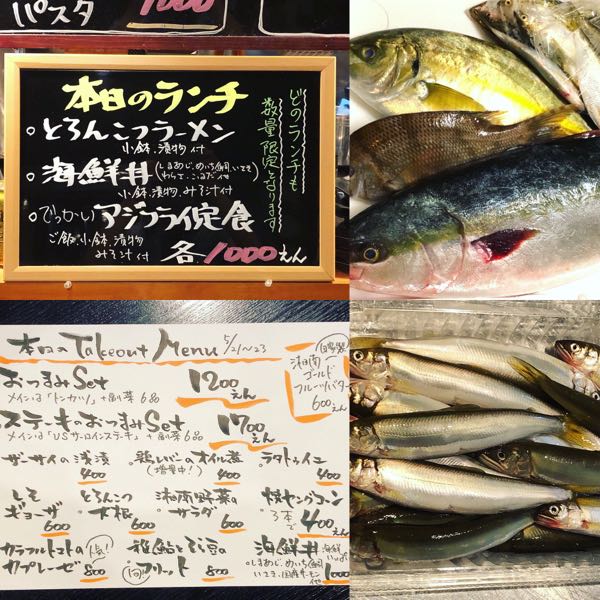 パスタ 1000
本日のランチ
どのランチも
数量限定となります
。とろんこつラーメン
小鉢、漬物付
。海鮮丼
(しまあじ、めいち鯛、いさき
わらさ、こはだ他
小鉢、漬物、みそ汁付
。でっかいアジフライ定食
ご飯、小鉢、漬物
みそ汁付
各1000えん
本日のTakeout Menu 5/21〜23
おつまみSet 1200えん
メインは「トンカツ」+副菜6品
ステーキのおつまみSet 1700えん
メインは「USサーロインステーキ」+副菜6品
自家製
湘南
ゴールド
フルーツバター
600えん
ザーサイの浅漬
400
鶏レバーのオイル煮
(増量中!)
400
ラタトゥイユ
400
しそ
ギョーザ
600
とろんこつ
大根
600
湘南野菜の
サラダ
600
焼ヤングコーン
3本で
400えん
カラフルトマトの
カプレーゼ
800
稚鮎と空豆の
フリット
800
海鮮丼
しまあじ、めいち鯛
いさき、国産サーモン
他
1000